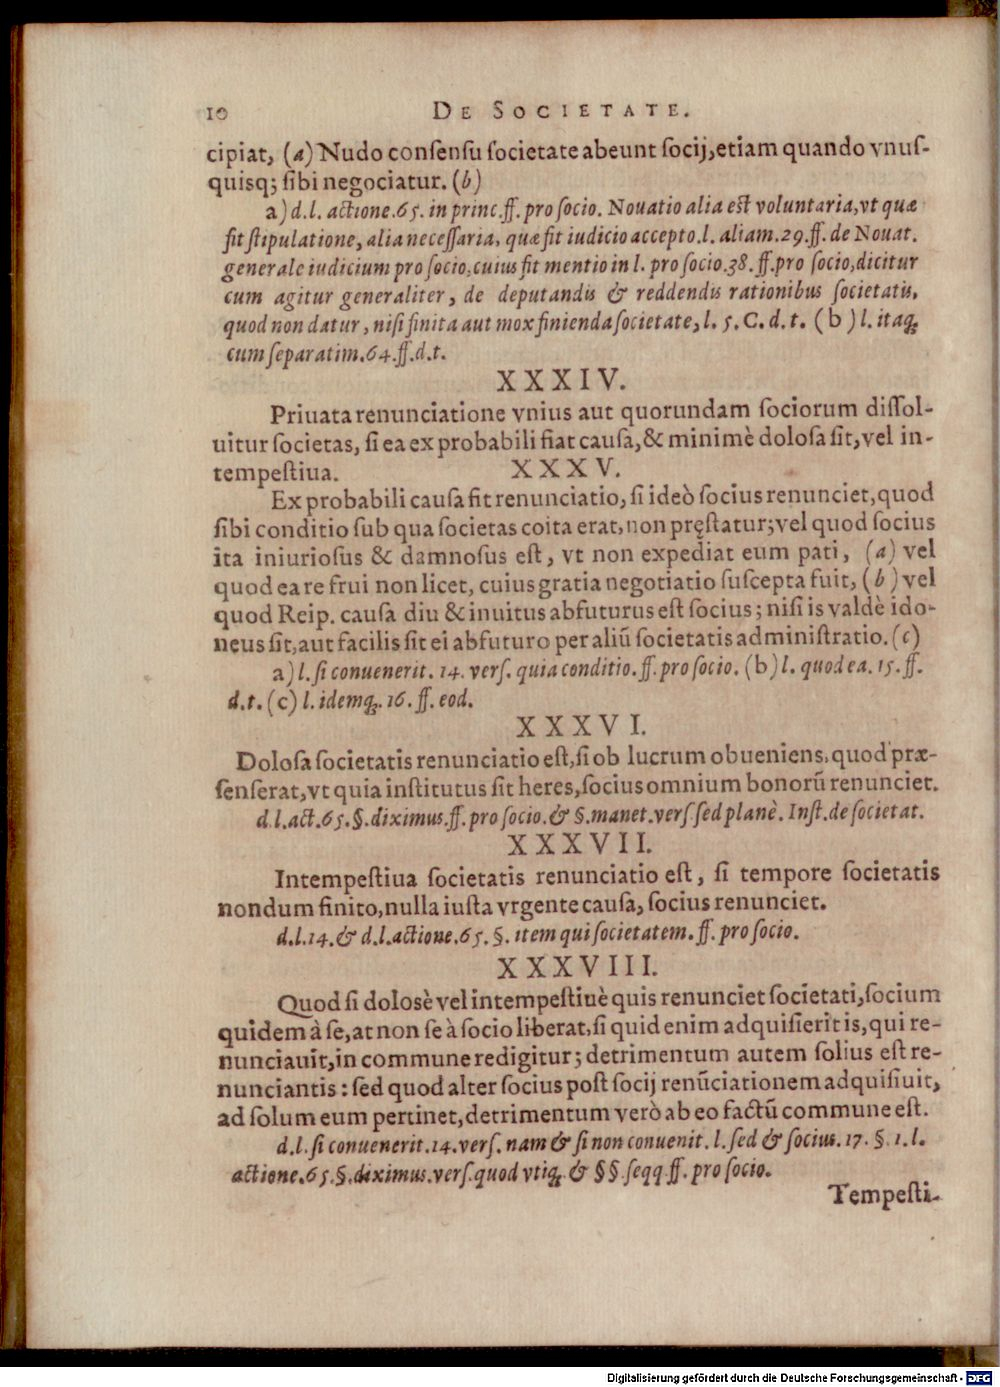 10 DE SOCIETATE.
cipiat, (a) Nudo consensu societate abeunt socij, etiam quando vnus-
quisq; sibi negociatur. (b)
a) d. l. actione. 65. in princ. ff. pro socio. Nouatio alia est voluntaria, vt quæ
fit stipulatione, alia necessaria, quæ fit iudicio accepto. l. aliam. 29. ff. de Nouat.
generale iudicium pro socio, cuius fit mentio in l. pro socio. 38. ff. pro socio, dicitur
cum agitur generaliter, de deputandis & reddendis rationibus societatis,
quod non datur, nisi finita aut mox finienda societate, l. 5. C. d. t. (b) l. itaq;
cum separatim. 64. ff. d. t.
XXXIV.
Priuata renunciatione vnius aut quorundam sociorum dissol-
uitur societas, si ea ex probabili fiat causa, & minimè dolosa sit, vel in-
tempestiua. XXXV.
Ex probabili causa fit renunciatio, si ideò socius renunciet, quod
sibi conditio sub qua societas coita erat, non pręstatur; vel quod socius
ita iniuriosus & damnosus est, vt non expediat eum pati, (a) vel
quod ea re frui non licet, cuius gratia negotiatio suscepta fuit, (b) vel
quod Reip. causa diu & inuitus abfuturus est socius; nisi is valdè ido-
neus sit, aut facilis sit ei abfuturo per aliũ societatis administratio. (c)
a) l. si conuenerit. 14. vers. quia conditio. ff. pro socio. (b) l. quod ea. 15. ff.
d. t. (c) l. idemq;. 16. ff. eod.
XXXVI.
Dolosa societatis renunciatio est, si ob lucrum obueniens, quod præ-
senserat, vt quia institutus sit heres, socius omnium bonorũ renunciet.
d. l. act. 65. §. diximus. ff. pro socio. & §. manet. vers. sed planè. Inst. de societat.
XXXVII.
Intempestiua societatis renunciatio est, si tempore societatis
nondum finito, nulla iusta vrgente causa, socius renunciet.
d. l. 14. & d. l. actione. 65. §. item qui societatem. ff. pro socio.
XXXVIII.
Quod si dolosè vel intempestiuè quis renunciet societati, socium
quidem à se, at non se à socio liberat, si quid enim adquisierit is, qui re-
nunciauit, in commune redigitur; detrimentum autem solius est re-
nunciantis: sed quod alter socius post socij renũciationem adquisiuit,
ad solum eum pertinet, detrimentum verò ab eo factũ commune est.
d. l. si conuenerit. 14. vers. nam & si non conuenit. l. sed & socius. 17. §. 1. l.
actione. 65. §. diximus. vers. quod vtiq; & §§. seqq. ff. pro socio.
Tempesti-
Digitalisierung gefördert durch die Deutsche Forschungsgemeinschaft - DFG